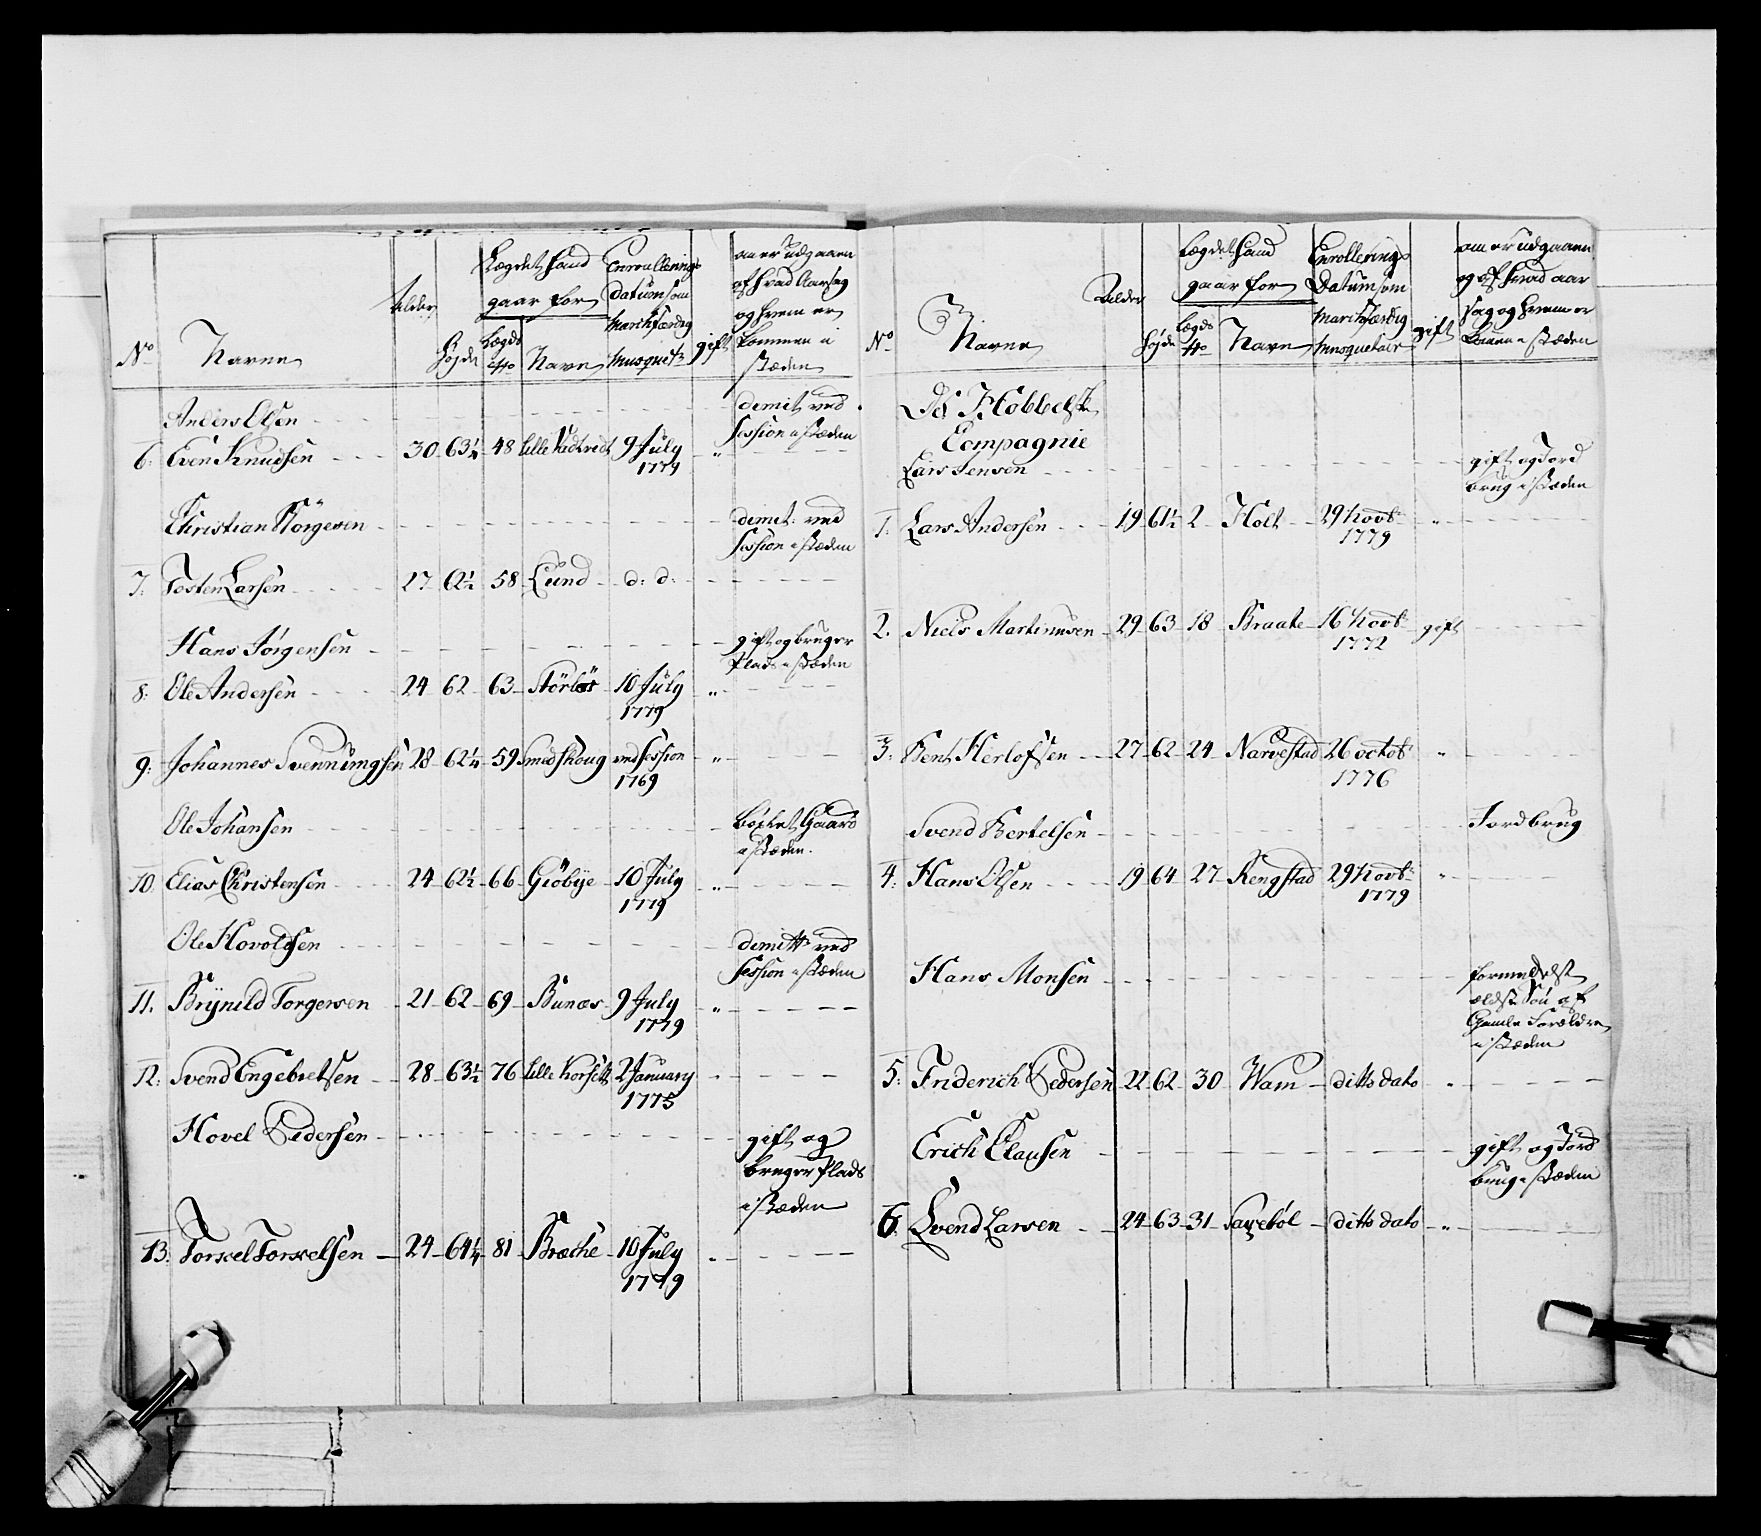 No Navne Alder Højde Lægdet hand gaar for Lægds No Navn Enroullerings Datum som March færdig Musquet: gift om er udgaaen af hvad Aarsag og hvem er kommen i stæden
Anders Olsen - - - demit: ved Session i stæden
6: Even Knudsen - - 30 63¼ 48 Lille 9 July 1779 "
Christian Börgesen - - - demit: ved Session i stæden
7: Tosten Larsen - - 17 62½ 58 Lund - d: d: - -
Hans Jörgensen - - - gift og bruger Plads i stæden
8: Ole Andersen - - 24 62 63 10 July 1779 "
9: Johannes Svennungsen 28 62¼ 59 Smedskoug ved Session 1769 "
Ole Johansen - - - böxlet Gaard i stæden.
10: Elias Christensen - - 24 62½ 66 Giöbye - 10 July 1779 "
Ole Hovoldsen - - - demitt: ved Session i stæden
11. Brÿnild Torgersen - 21 62 69 Bunæs - 9 July 1779 "
12: Svend Engebretsen - 28 63½ 76 Lille Korseth 2 January 1775
Hovel Pedersen - - - gift og bruger Plads i stæden
13: Torkel Torkelsen - 24 64¼ 81 Bræche - 10 July 1779
No Navne Alder Højde Lægdet hand gaar for Lægds No Navn Enrollerings Datum som March færdig Musqueteer gift om er udgaaen og af hvad aarsag og hvem er kommen i stæden
Hobbels
Compagnie
Lars Jensen - - - gift og Jord brug i stæden
1. Lars Andersen - - 19 61½ 2 Holt - 29 Novbr 1779 "
2. Niels Martinusen - 29 63 18 Braate - 16 Novbr 1772 gift
3. Bent Herlofsen - 27 62 24 Narvestad 26 octobr 1776 "
Svend Bertelsen - - - Jordbrug
4: Hans Olsen - - 19 64 27 Rengstad 29 Novbr 1779 "
Hans Monsen - - - formedelst ældste Søn af Gamle Forældre i stæden
5: Friderich Pedersen 22 62 30 Wam - ditto dato
Erich Clausen - - - gift og Jord brug i stæden
6: Svend Larsen - - 24 63 31 ditto dato - "